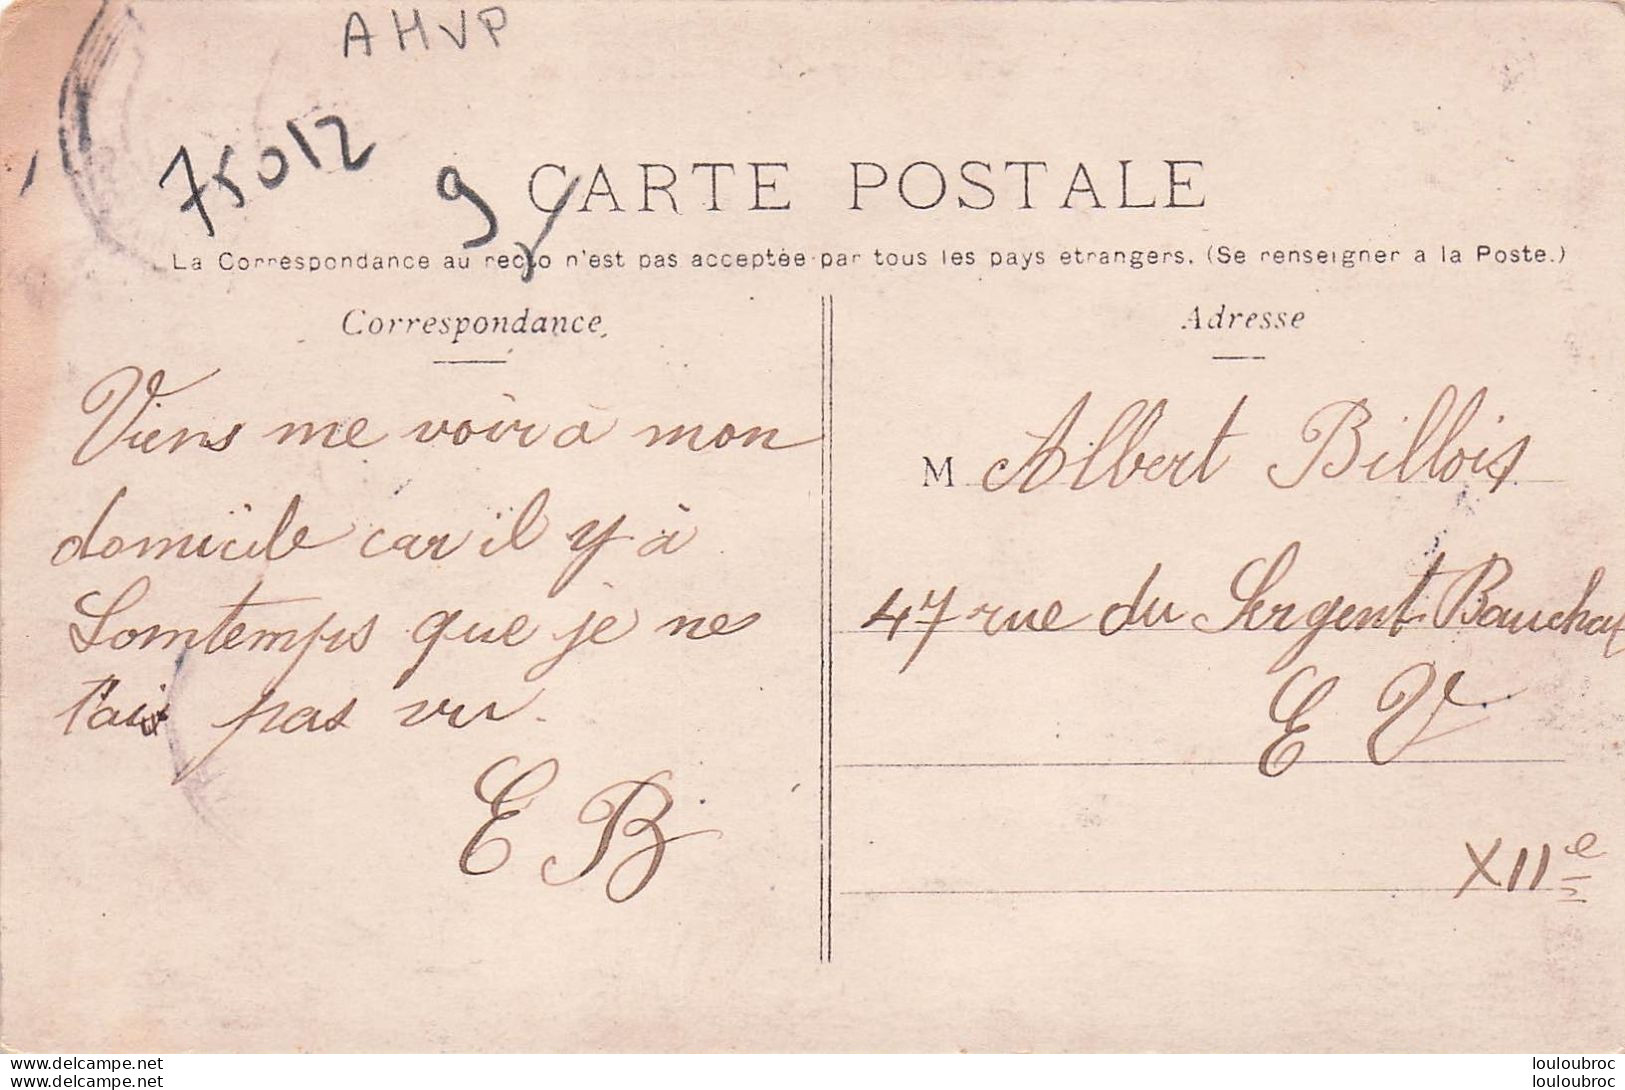 AHVP
75012
9
CARTE POSTALE
La Correspondance au recto n'est pas acceptée par tous les pays etrangers. (Se renseigner a la Poste.)
Correspondance
Viens me voir à mon
domicile car il y à
Lomtemps que je ne
t'ais pas vu.
E B
Adresse
M Albert Billois
47 rue du Sergent Bauchat
E V
XIIe
delcampe.net
louloubroc
louloubroc